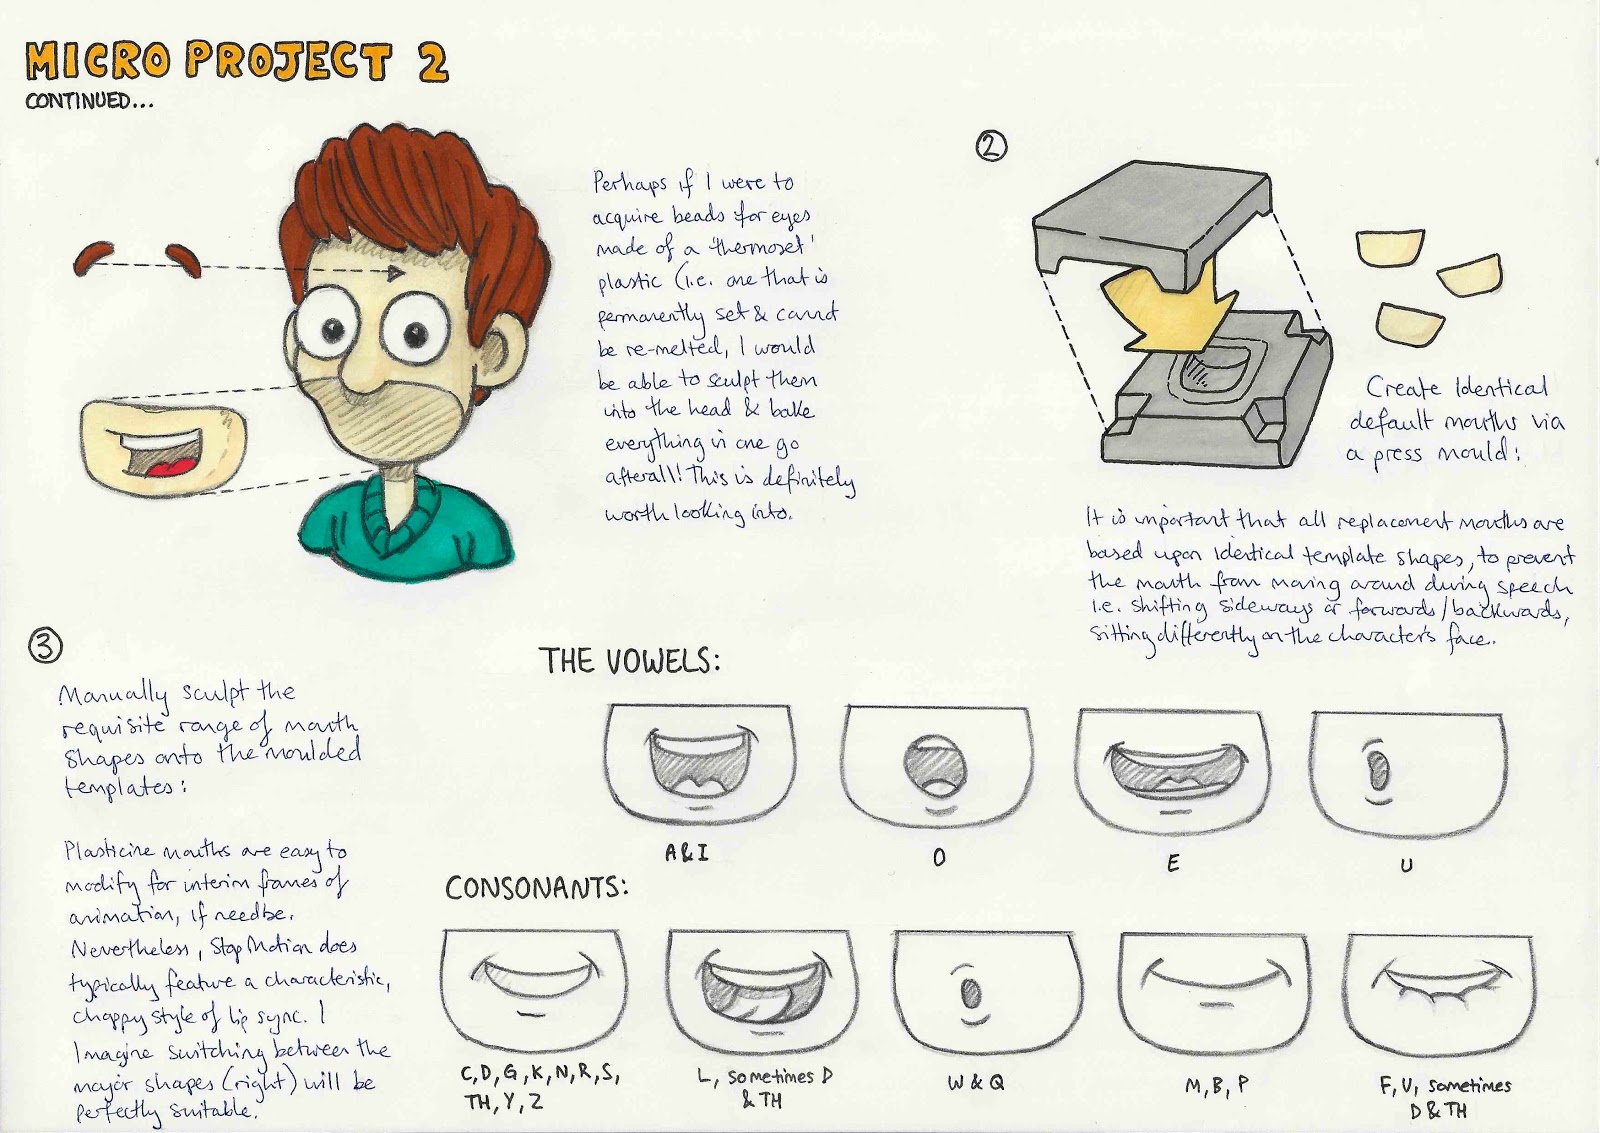 MICRO PROJECT 2
CONTINUED...
Perhaps if I were to
acquire beads for eyes
made of a 'thermoset'
plastic (i.e. one that is
permanently set & cannot
be re-melted, I would
be able to sculpt them
into the head & bake
everything in one go
afterall! This is definitely
worth looking into.
2
Create Identical
default mouths via
a press mould:
It is important that all replacement mouths are
based upon identical template shapes, to prevent
the mouth from moving around during speech
i.e. shifting sideways or forwards/backwards,
sitting differently on the character's face.
3
Manually sculpt the
requisite range of mouth
shapes onto the moulded
templates:
Plasticine mouths are easy to
modify for interim frames of
animation, if needbe.
Nevertheless, Stop Motion does
typically feature a characteristic,
choppy style of lip sync. I
imagine switching between the
major shapes (right) will be
perfectly suitable.
THE VOWELS:
A & I
O
E
U
CONSONANTS:
C, D, G, K, N, R, S,
TH, Y, Z
L, sometimes D
& TH
W & Q
M, B, P
F, V, sometimes
D & TH